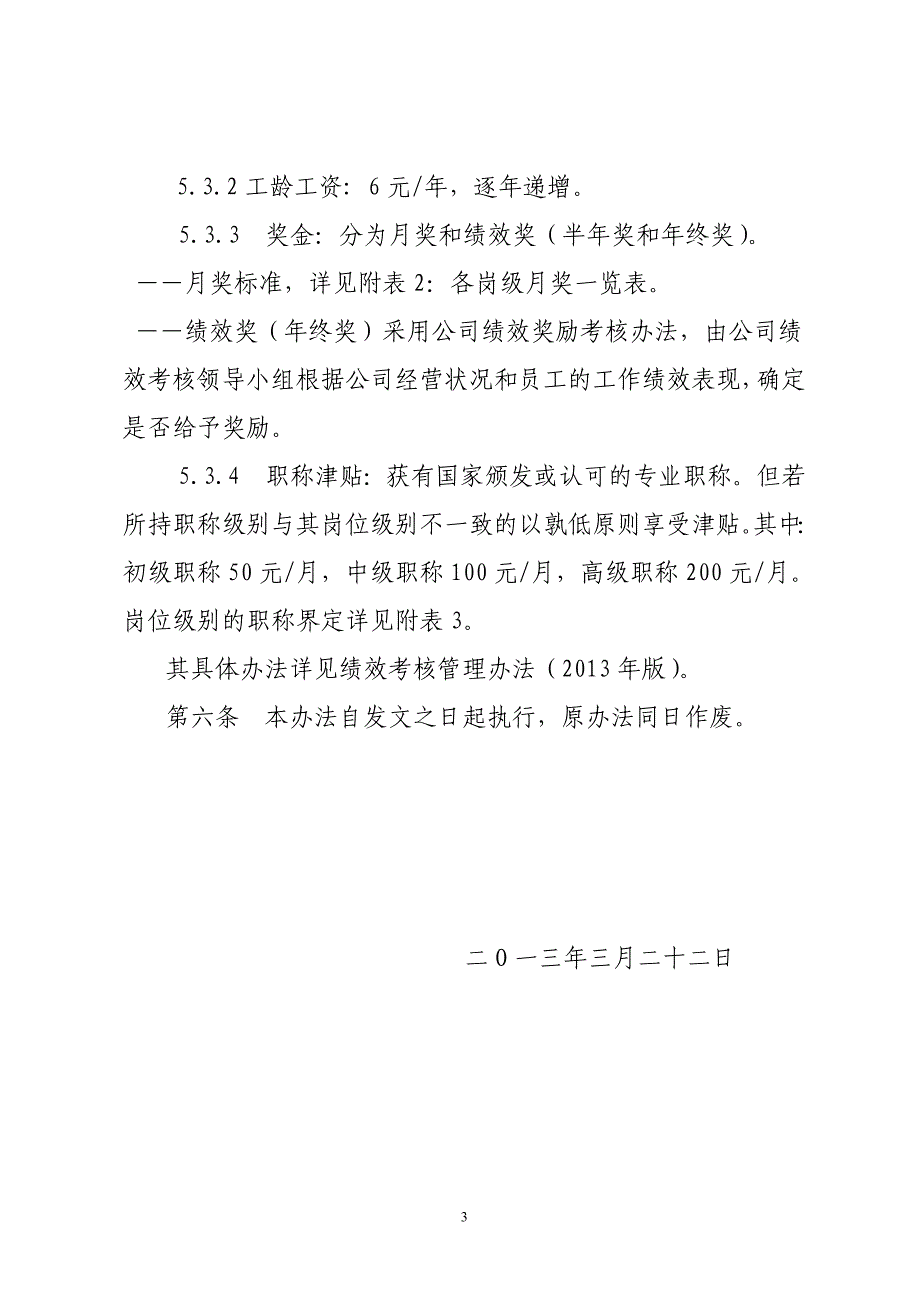 5.3.2工龄工资：6元/年，逐年递增。
5.3.3　奖金：分为月奖和绩效奖（半年奖和年终奖）。
――月奖标准，详见附表2：各岗级月奖一览表。
――绩效奖（年终奖）采用公司绩效奖励考核办法，由公司绩
效考核领导小组根据公司经营状况和员工的工作绩效表现，确定
是否给予奖励。
5.3.4　职称津贴：获有国家颁发或认可的专业职称。但若
所持职称级别与其岗位级别不一致的以孰低原则享受津贴。其中：
初级职称50元/月，中级职称100元/月，高级职称200元/月。
岗位级别的职称界定详见附表3。
其具体办法详见绩效考核管理办法（2013年版）。
第六条　本办法自发文之日起执行，原办法同日作废。
二0一三年三月二十二日
3